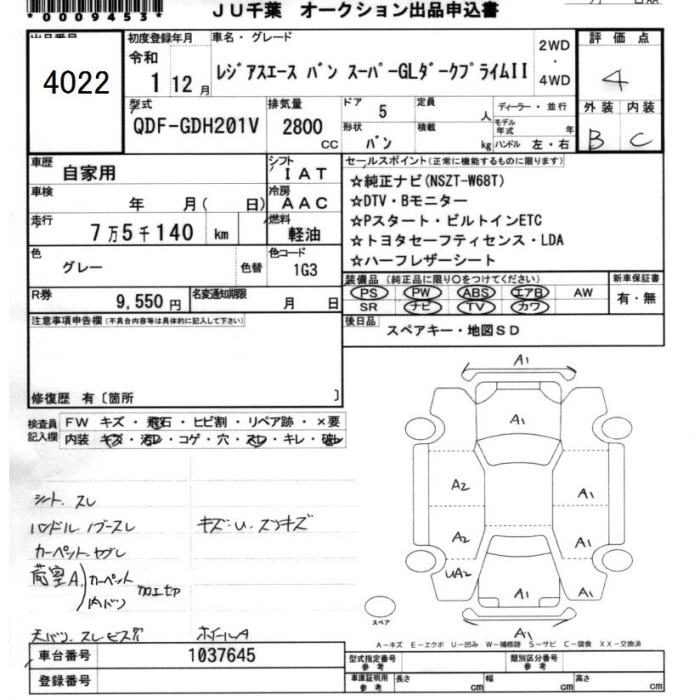 *0009453*
JU千葉 オークション出品申込書
出品番号
4022
初度登録年月
令和
1 12 月
車名・グレード
レジアスエース バン スーパーGLダークプライムII
2WD
・
4WD
評価点
4
外装 内装
B C
型式
QDF-GDH201V
排気量
2800
CC
ドア 5
定員 人
形状 バン
積載 kg
ディーラー・並行
モデル年式 年
ハンドル 左・右
車歴
自家用
シフト
IAT
車検
年 月( 日)
冷房
AAC
走行
7万5千140 km
燃料
軽油
色
グレー
色替
色コード
1G3
R券
9,550円
名変通知期限
月 日
セールスポイント(正常に機能するものに限ります)
☆純正ナビ(NSZT-W68T)
☆DTV・Bモニター
☆Pスタート・ビルトインETC
☆トヨタセーフティセンス・LDA
☆ハーフレザーシート
装備品(純正品に限り○をつけてください)
PS PW ABS エアB AW
SR ナビ TV カワ
新車保証書
有・無
後日品
スペアキー・地図SD
注意事項申告欄(不具合内容等は具体的に記入して下さい)
修復歴 有〔箇所 〕
検査員
記入欄
FW キズ・飛石・ヒビ割・リペア跡・×要
内装 キズ・汚レ・コゲ・穴・スレ・キレ・破レ
シート、スレ
ハンドル ノブースレ
キズ・U・スンキズ
カーペット
荷室A
カーペット
内バン
天バン、スレ
ホイールA
A1
A1
A2
A1
A2
A1
UA2
A1
A1
A1
スペア
A－キズ E－エクボ U－凹み W－補修跡 S－サビ C－腐食 XX－交換済
車台番号
1037645
登録番号
型式指定番号
参考
類別区分番号
参考
車庫証明用
参考
長さ cm
幅 cm
高さ cm